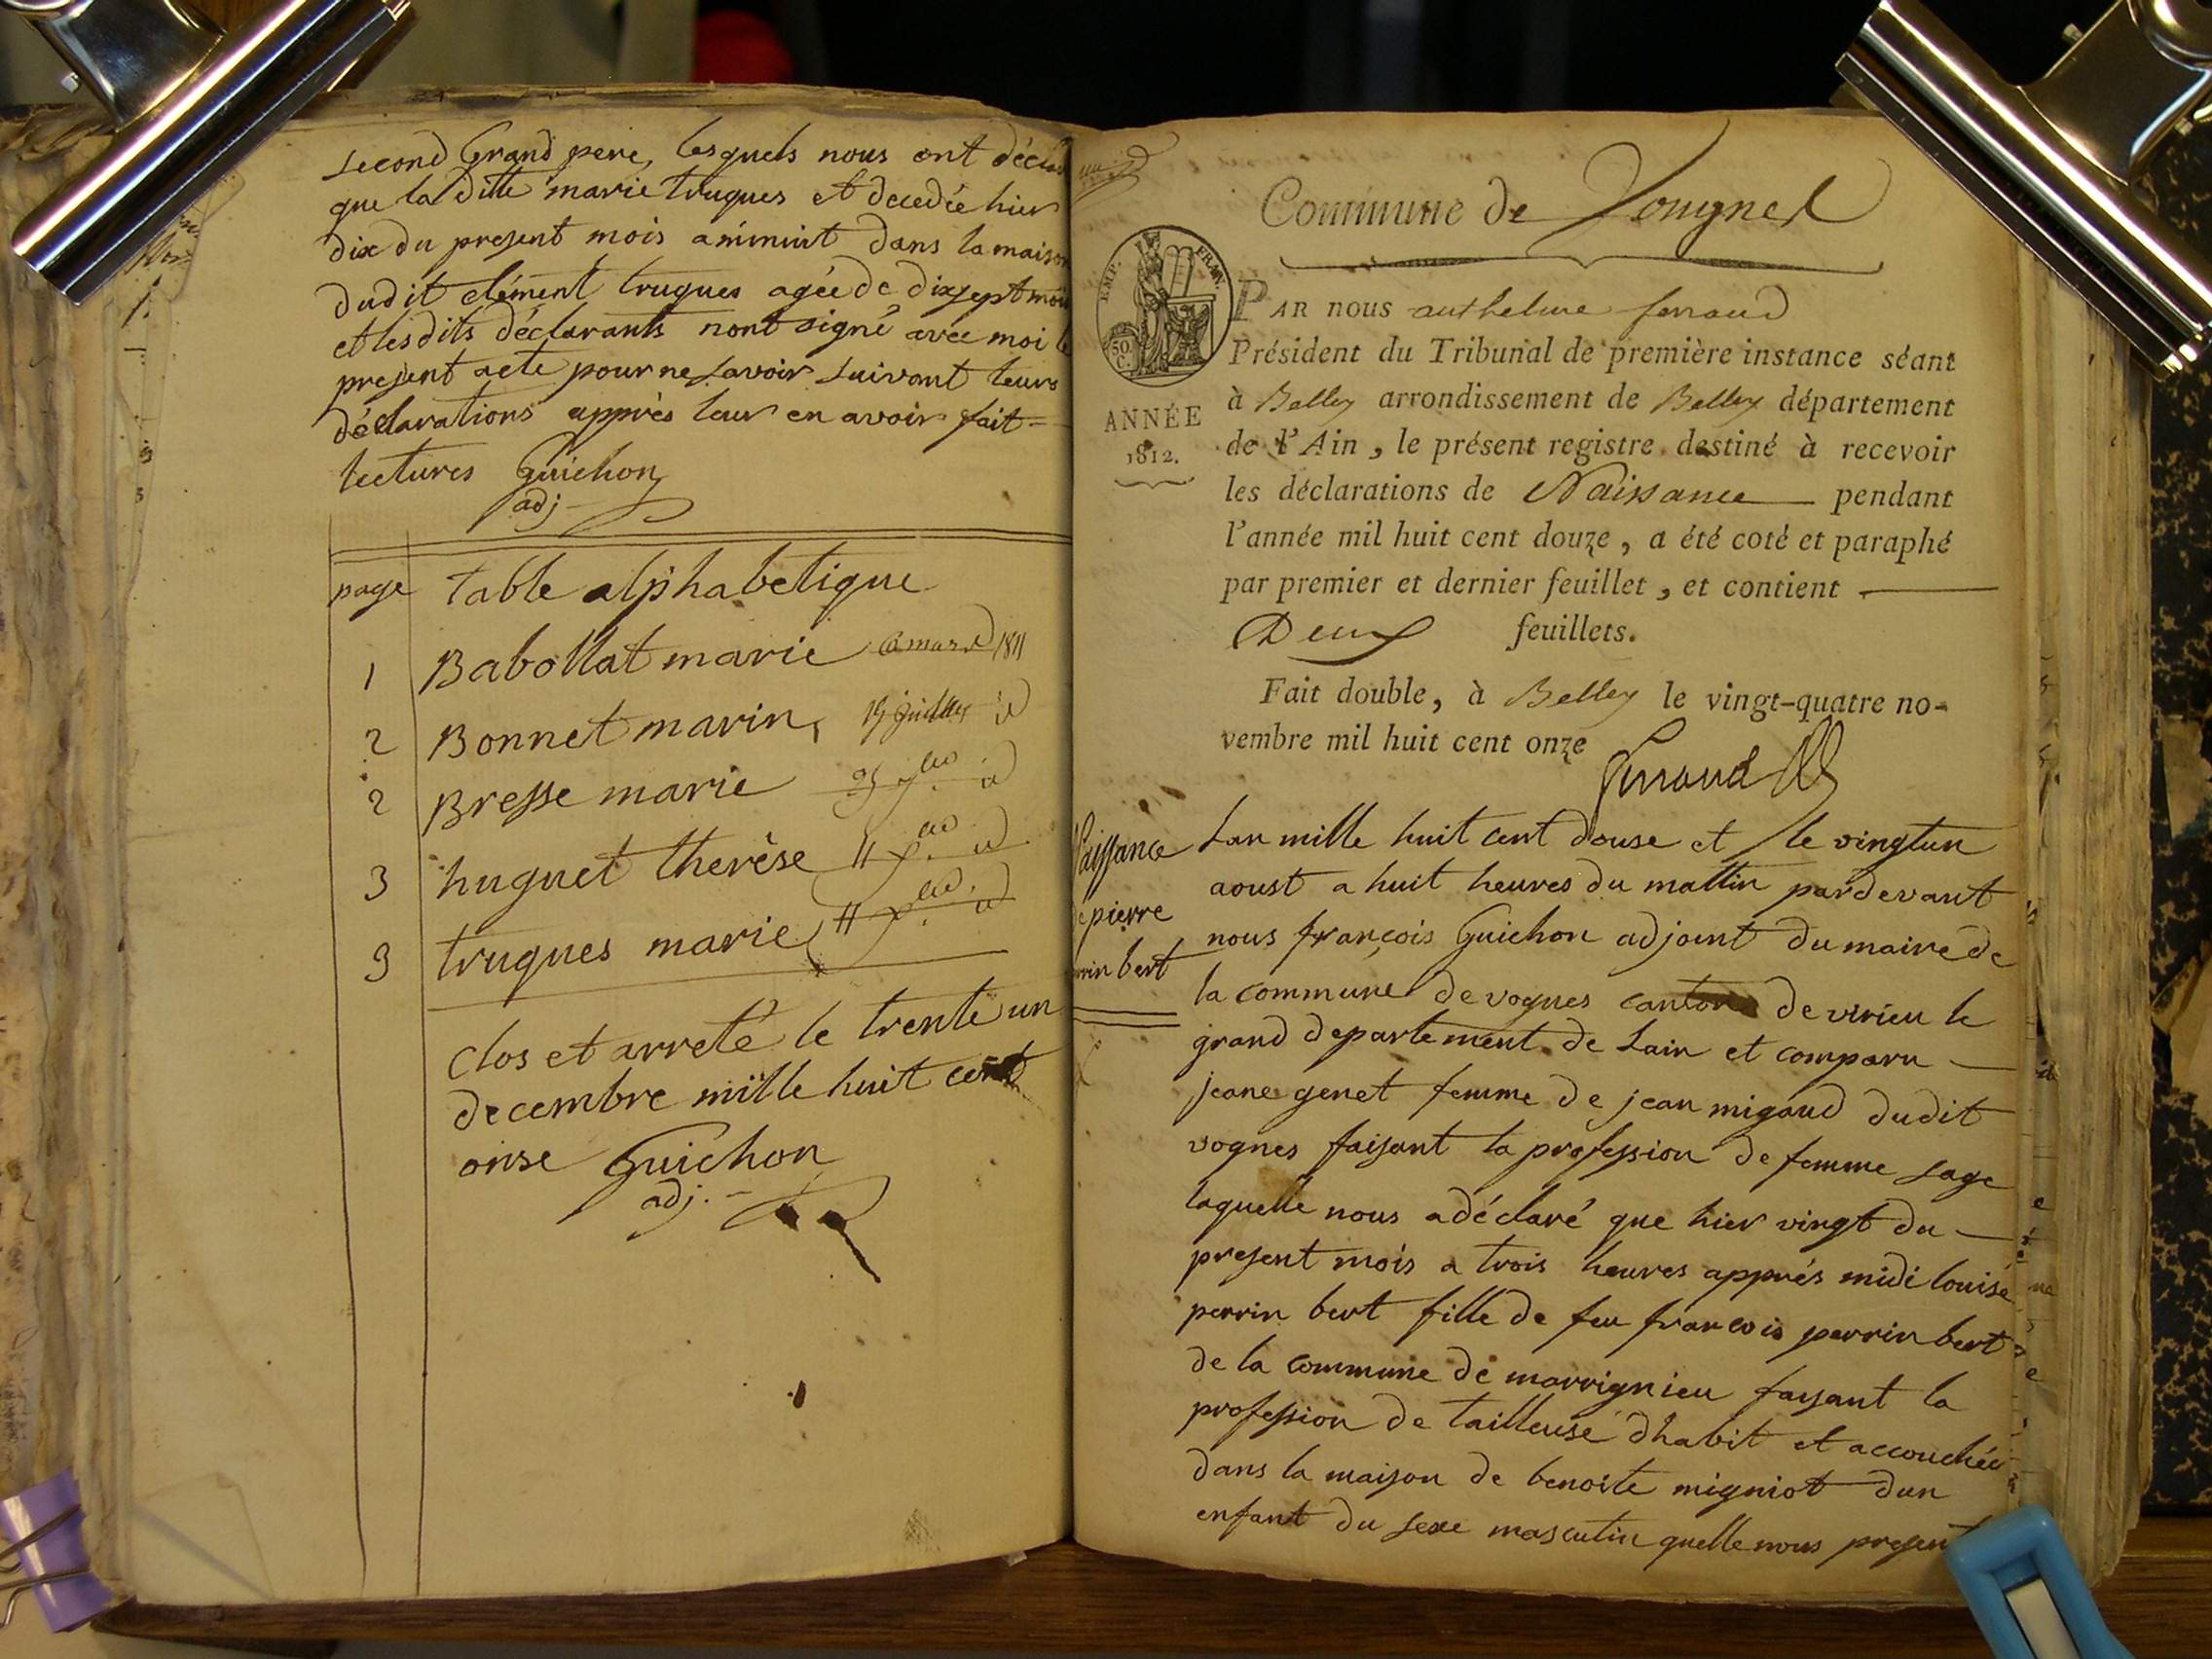 second Grand pere, lesquels nous ont décla
que la ditte marie truques et decedée hier
dix du present mois aminuit dans la maison
dudit clément truques agée de dixsept mois
et lesdits déclarants nont signé avec moi le
present acte pour ne savoir suivant leurs
déclarations apprès leur en avoir fait =
lectures Guichon
adj
page table alphabetique
1 Babollat marie 6 mars 1811
2 Bonnet marin, 19 juillet id
2 Bresse marie
3 huguet therèse 11
3 truques marie 11
Clos et arreté le trente un
decembre mille huit cent
onse Guichon
adj.
Commune de
EMP. FRAN.
50 C.
ANNÉE
1812.
PAR NOUS anthelme ferraud
Président du Tribunal de première instance séant
à Belley arrondissement de Belley département
de l'Ain, le présent registre destiné à recevoir
les déclarations de Naissance pendant
l'année mil huit cent douze, a été coté et paraphé
par premier et dernier feuillet, et contient
Deux feuillets.
Fait double, à Belley le vingt-quatre no-
vembre mil huit cent onze
Naissance
de pierre
rrin bert
Lan mille huit cent douse et le vingtun
aoust a huit heures du mattin pardevant
nous françois Guichon adjoint du maire de
la commune de vognes canton de virieu le
grand departement de Lain et comparu
jeane genet femme de jean migaud dudit
vognes faisant la profession de femme sage
laquelle nous a déclaré que hier vingt du
present mois a trois heures apprés midi louise
perrin bert fille de feu francois perrin bert
de la commune de marrignieu faysant la
profession de tailleuse dhabit et accouchée
dans la maison de benoite migniot dun
enfant du sexe masculin quelle nous present